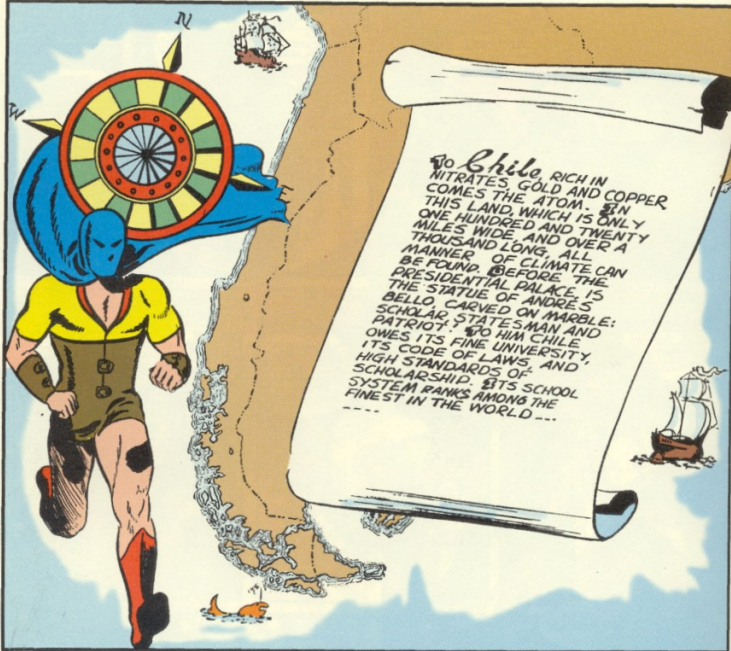 N
W
TO Chile, RICH IN
NITRATES, GOLD AND COPPER
COMES THE ATOM. IN
THIS LAND, WHICH IS ONLY
ONE HUNDRED AND TWENTY
MILES WIDE AND OVER A
THOUSAND LONG, ALL
MANNER OF CLIMATE CAN
BE FOUND. BEFORE THE
PRESIDENTIAL PALACE IS
THE STATUE OF ANDRES
BELLO, CARVED ON MARBLE:
SCHOLAR, STATESMAN AND
PATRIOT! TO HIM CHILE
OWES ITS FINE UNIVERSITY,
ITS CODE OF LAWS, AND
HIGH STANDARDS OF
SCHOLARSHIP. ITS SCHOOL
SYSTEM RANKS AMONG THE
FINEST IN THE WORLD ---
----